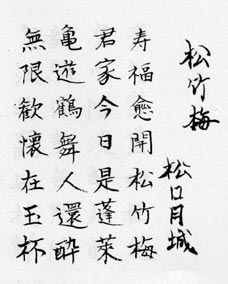 松竹梅
松口月城
寿福愈開松竹梅
君家今日是蓬萊
亀遊鶴舞人還酔
無限歓懐在玉杯